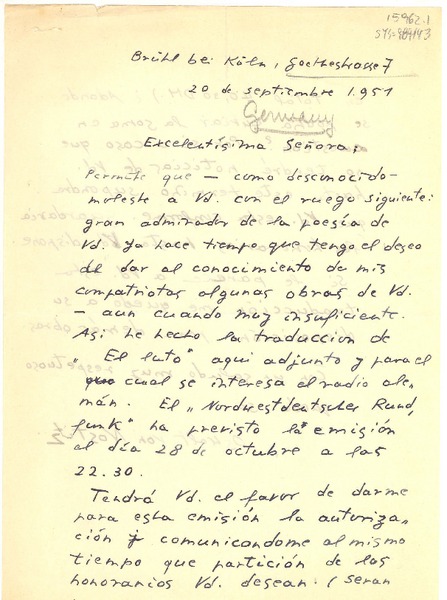 15962.1
Brühl bei Köln, Goethestrasse 7
20 de septiembre 1.951
Germany
Excelentísima Señora;
Permite que — como desconocido-
moleste a Vd. con el ruego siguiente:
gran admirador de la poesía de
Vd. ya hace tiempo que tengo el deseo
de dar al conocimiento de mis
compatriotas algunas obras de Vd.
— aun cuando muy insuficiente.
Asi he hecho la traduccion de
"El luto" aqui adjunto y para el
cual se interesa el radio ale-
mán. El "Nordwestdeutscher Rund
funk" ha previsto la emisión
al dia 28 de octubre a las
22.30.
Tendrá Vd. el favor de darme
para esta emisión la autoriza-
ción y comunicandome al mismo
tiempo que partición de los
honorarios Vd. desean. (seran